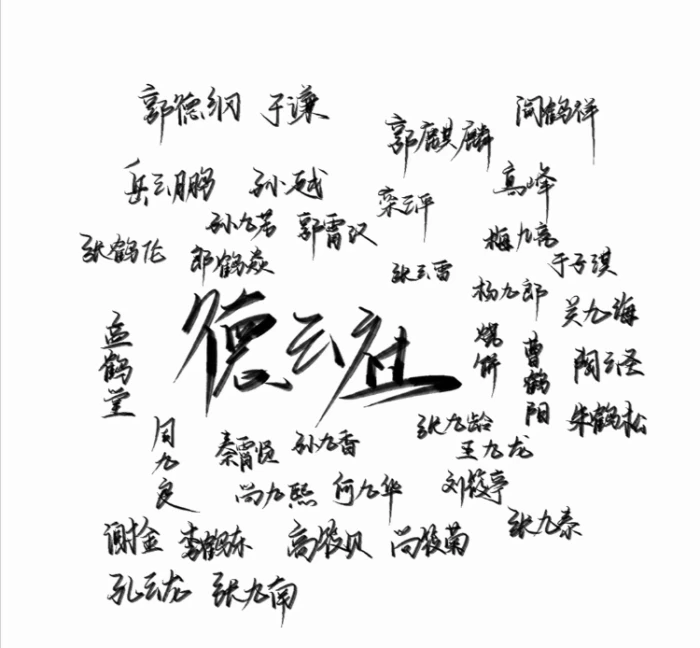 郭德纲 于谦
郭麒麟
阎鹤祥
岳云鹏 孙越
栾云平
高峰
孙九芳 郭霄汉
梅九亮
张鹤伦 郎鹤焱
张云雷
于子淇
杨九郎
吴九海
孟鹤堂
德云社
烧饼
曹鹤阳
陶云圣
朱鹤松
周九良
秦霄贤 孙九香
张九龄
王九龙
尚九熙 何九华
刘筱亭
张九泰
谢金 李鹤东
高筱贝 尚筱菊
孔云龙 张九南